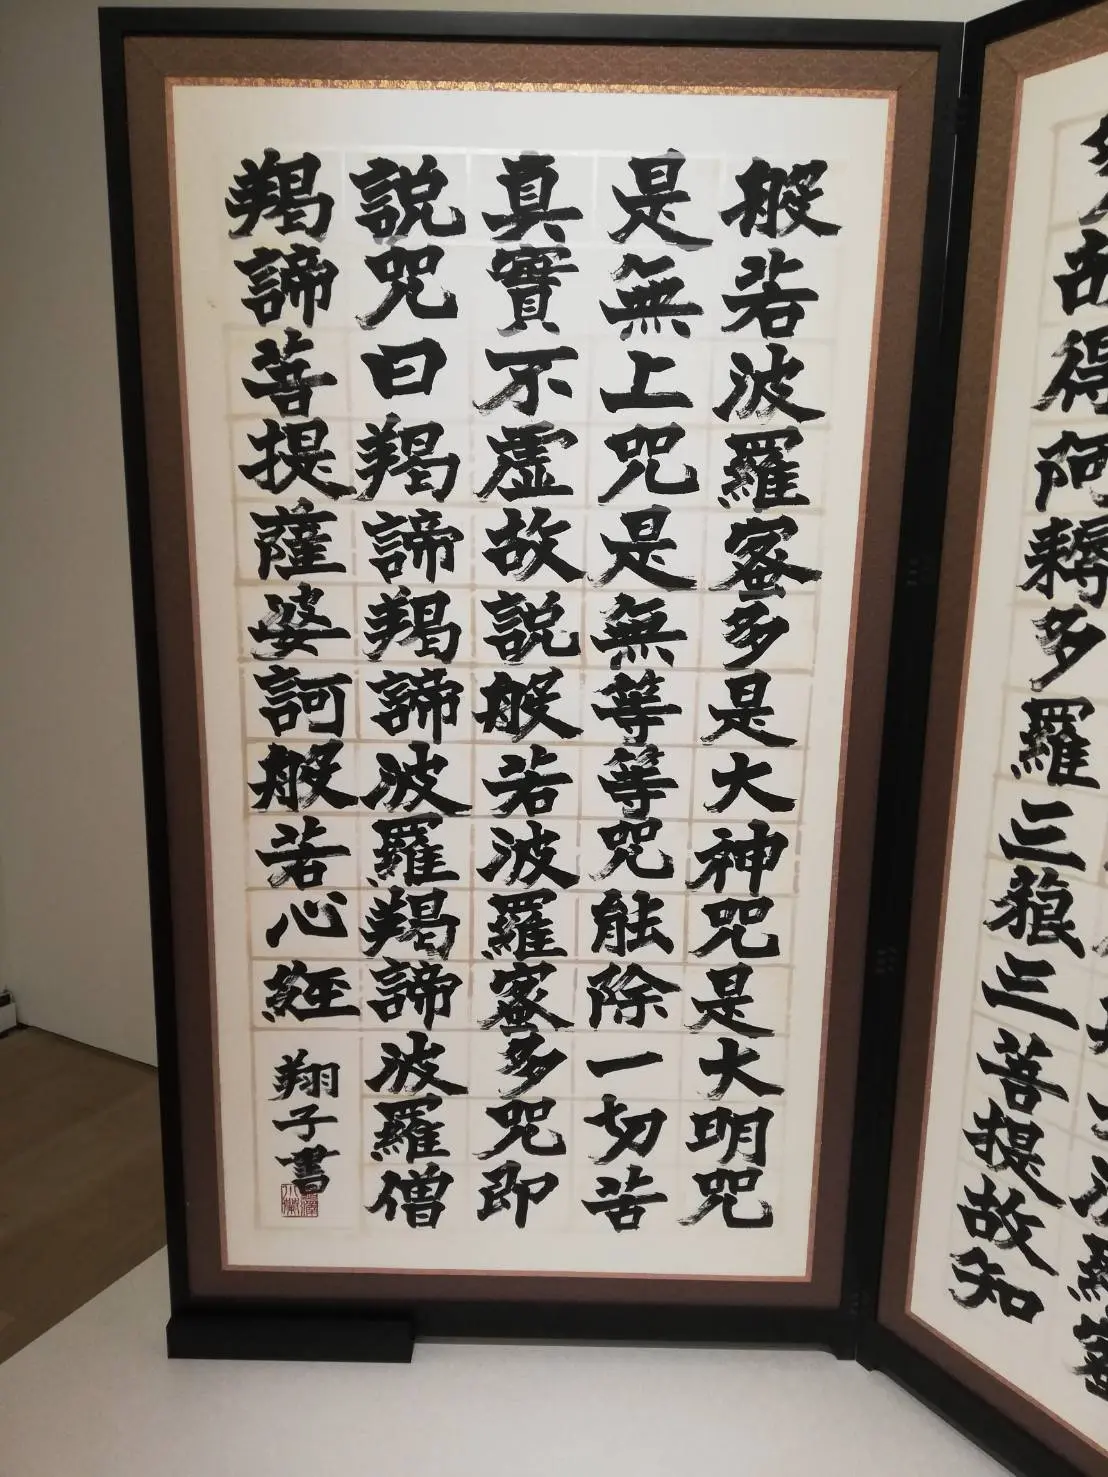 故得阿耨多羅三藐三菩提故知
般若波羅蜜多是大神咒是大明咒
是無上咒是無等等咒能除一切苦
真實不虚故説般若波羅蜜多咒即
説咒曰羯諦羯諦波羅羯諦波羅僧
羯諦菩提薩婆訶般若心經
翔子書